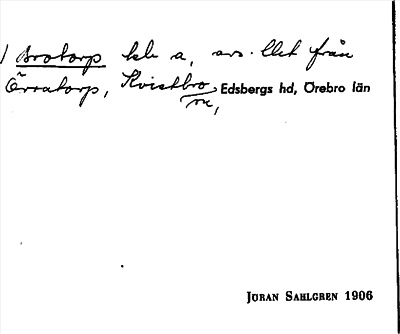 ) Brotorp kle a, avs. llet från
Örratorp, Kvistbro
sn, Edsbergs hd, Örebro län
JÖRAN SAHLGREN 1906